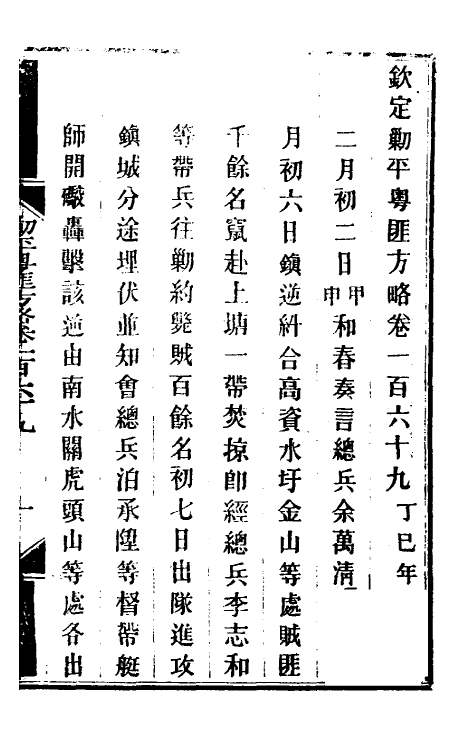 欽定勦平粵匪方略卷一百六十九 丁巳年
二月初二日甲申和春奏言總兵余萬清
月初六日鎮逆糾合高資水圩金山等處賊匪
千餘名竄赴上塘一帶焚掠卽經總兵李志和
等帶兵往勦約斃賊百餘名初七日出隊進攻
鎮城分途埋伏並知會總兵泊承陞等督帶艇
師開礮轟擊該逆由南水關虎頭山等處各出
勦平粵匪方略卷一百六十九
一